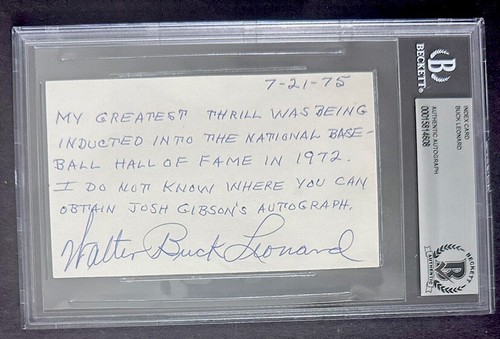 7-21-75
MY GREATEST THRILL WAS BEING
INDUCTED INTO THE NATIONAL BASE-
BALL HALL OF FAME IN 1972.
I DO NOT KNOW WHERE YOU CAN
OBTAIN JOSH GIBSON'S AUTOGRAPH.
Walter Buck Leonard
BECKETT
INDEX CARD
BUCK LEONARD
AUTHENTIC AUTOGRAPH
BECKETT
AUTHENTIC